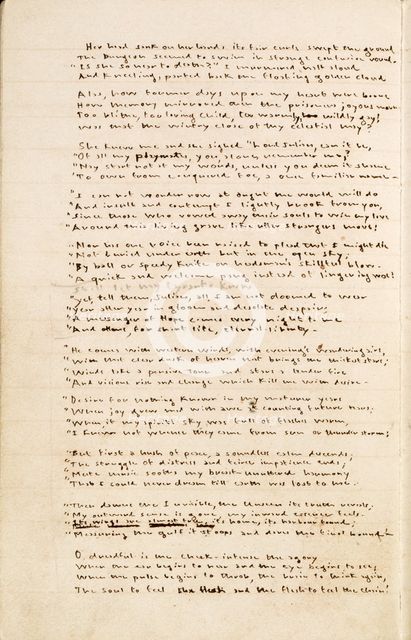 Her head sunk on her hands its fair curls swept the ground
The Dungeon seemed to swim in strange confusion round.
"Is she so near to death?" I murmured half aloud
And kneeling, parted back the floating golden cloud

Alas, how former days upon my heart were borne
How memory mirrored then the prisoner's joyous morn
Too blithe, too loving child, too warmly, too wildly gay!
Was that the wintry close of thy celestial May?

She knew me and she sighed "Lord Julian, can it be,
"Of all my playmates, you, alone, remember me?
"Nay start not at my words, unless you deem it shame
"To own from conquered foe, a once familiar name—

"I can not wonder now at ought the world will do
"And insult and contempt I lightly brook from you,
"Since those who vowed away their souls to win my love
"Around this living grave like utter strangers move!

"Nor has one voice been raised to plead that I might die
"Not buried under earth but in the open sky;
"By ball or speedy knife or headsman's skilful blow—
"A quick and welcome pang instead of lingering woe!

"Yet, tell them, Julian, all, I am not doomed to wear
"Year after year in gloom and desolate despair;
"A messenger of Hope comes every night to me
"And offers, for short life, eternal liberty—

"He comes with western winds, with evening's wandering airs,
"With that clear dusk of heaven that brings the thickest stars;
"Winds take a pensive tone and stars a tender fire
"And visions rise and change which kill me with desire—

"Desire for nothing known in my maturer years
"When joy grew mad with awe at counting future tears;
"When, if my spirit's sky was full of flashes warm,
"I knew not whence they came from sun or thunder storm;

"But first a hush of peace, a soundless calm descends;
"The struggle of distress and fierce impatience ends;
"Mute music sooths my breast—unuttered harmony
"That I could never dream till earth was lost to me.

"Then dawns the Invisible, the Unseen its truth reveals;
"My outward sense is gone, my inward essence feels—
"Its wings are almost free, its home, its harbour found;
"Measuring the gulf it stoops and dares the final bound—"

O, dreadful is the check—intense the agony
When the ear begins to hear and the eye begins to see;
When the pulse begins to throb, the brain to think again,
The soul to feel the flesh and the flesh to feel the chain!